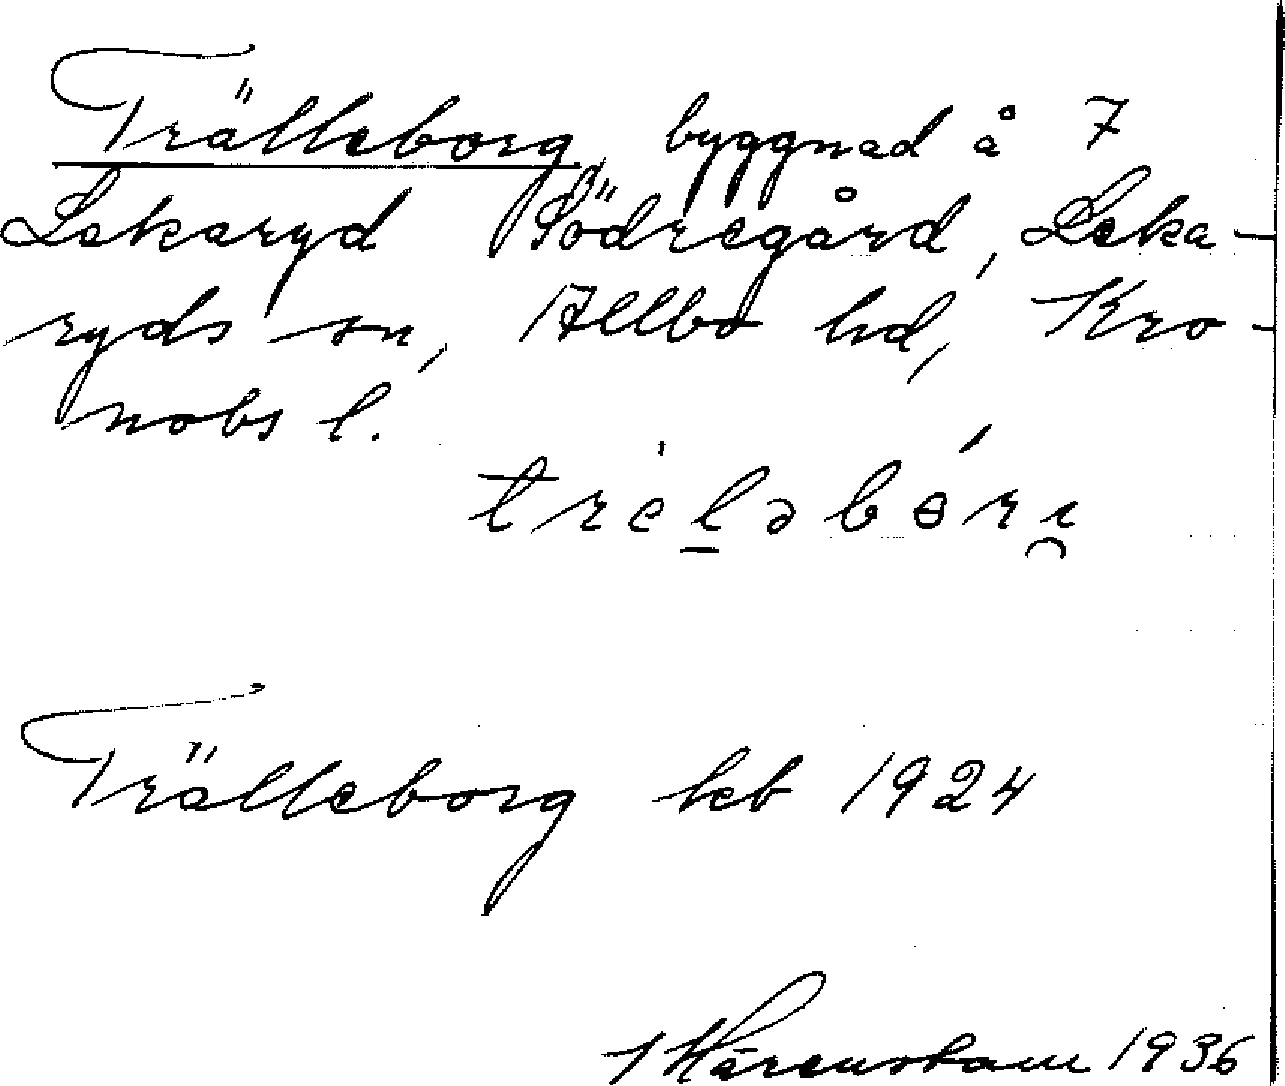 Trälleborg, byggnad å 7
Lekaryd Södregård, Leka-
ryds sn, Allbo hd, Kro-
nobs l.
trèl̠əbɵ́rı̯
Trälleborg hcb 1924
Härenstam 1936